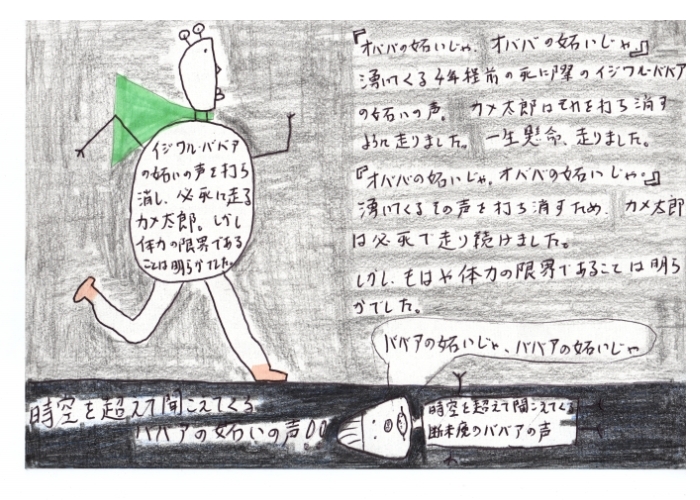 『オババの妬いじゃ、オババの妬いじゃ。』
湧いてくる4年程前の死に際のイジワル・ババア
の妬いの声。カメ太郎はそれを打ち消す
ように走りました。一生懸命、走りました。
『オババの妬いじゃ。オババの妬いじゃ。』
湧いてくるその声を打ち消すため、カメ太郎
は必死で走り続けました。
しかし、もはや体力の限界であることは明ら
かでした。
イジワル・ババア
の妬いの声を打ち
消し、必死に走る
カメ太郎。しかし
体力の限界である
ことは明らかでした。
ババアの妬いじゃ、ババアの妬いじゃ
時空を超えて聞こえてくる
ババアの妬いの声!!
時空を超えて聞こえてくる
断末魔のババアの声